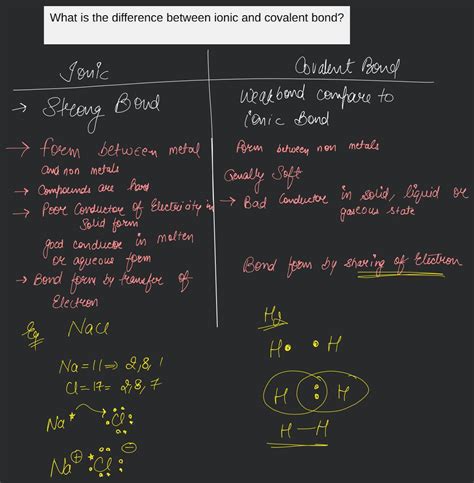 What is the difference between ionic and covalent bond?
Ionic
→ Strong Bond
→ form between metal
and non metals
→ Compounds are hard
→ Poor Conductor of Electricity in
Solid form
good conductor in molten
or aqueous form
→ Bond form by transfer of
Electron
Eg NaCl
Na=11⇒ 2,8,1
Cl=17= 2,8,7
Na Cl
Na⊕ Cl ⊖
Covalent Bond
Weak bond compare to
ionic Bond
Form between non metals
Usually Soft
→ Bad Conductor in solid, liquid or
gaseous state
Bond form by sharing of Electron
H2
H• •H
H : H
H—H